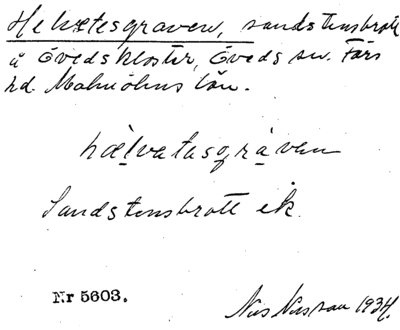 Helvetesgraven, sandstensbrott
å Övedskloster, Öveds sn. Färs
hd. Malmöhus län.
hælvatasgraven
Sandstensbrott ek.
Nr 5603.
Nils 1934.